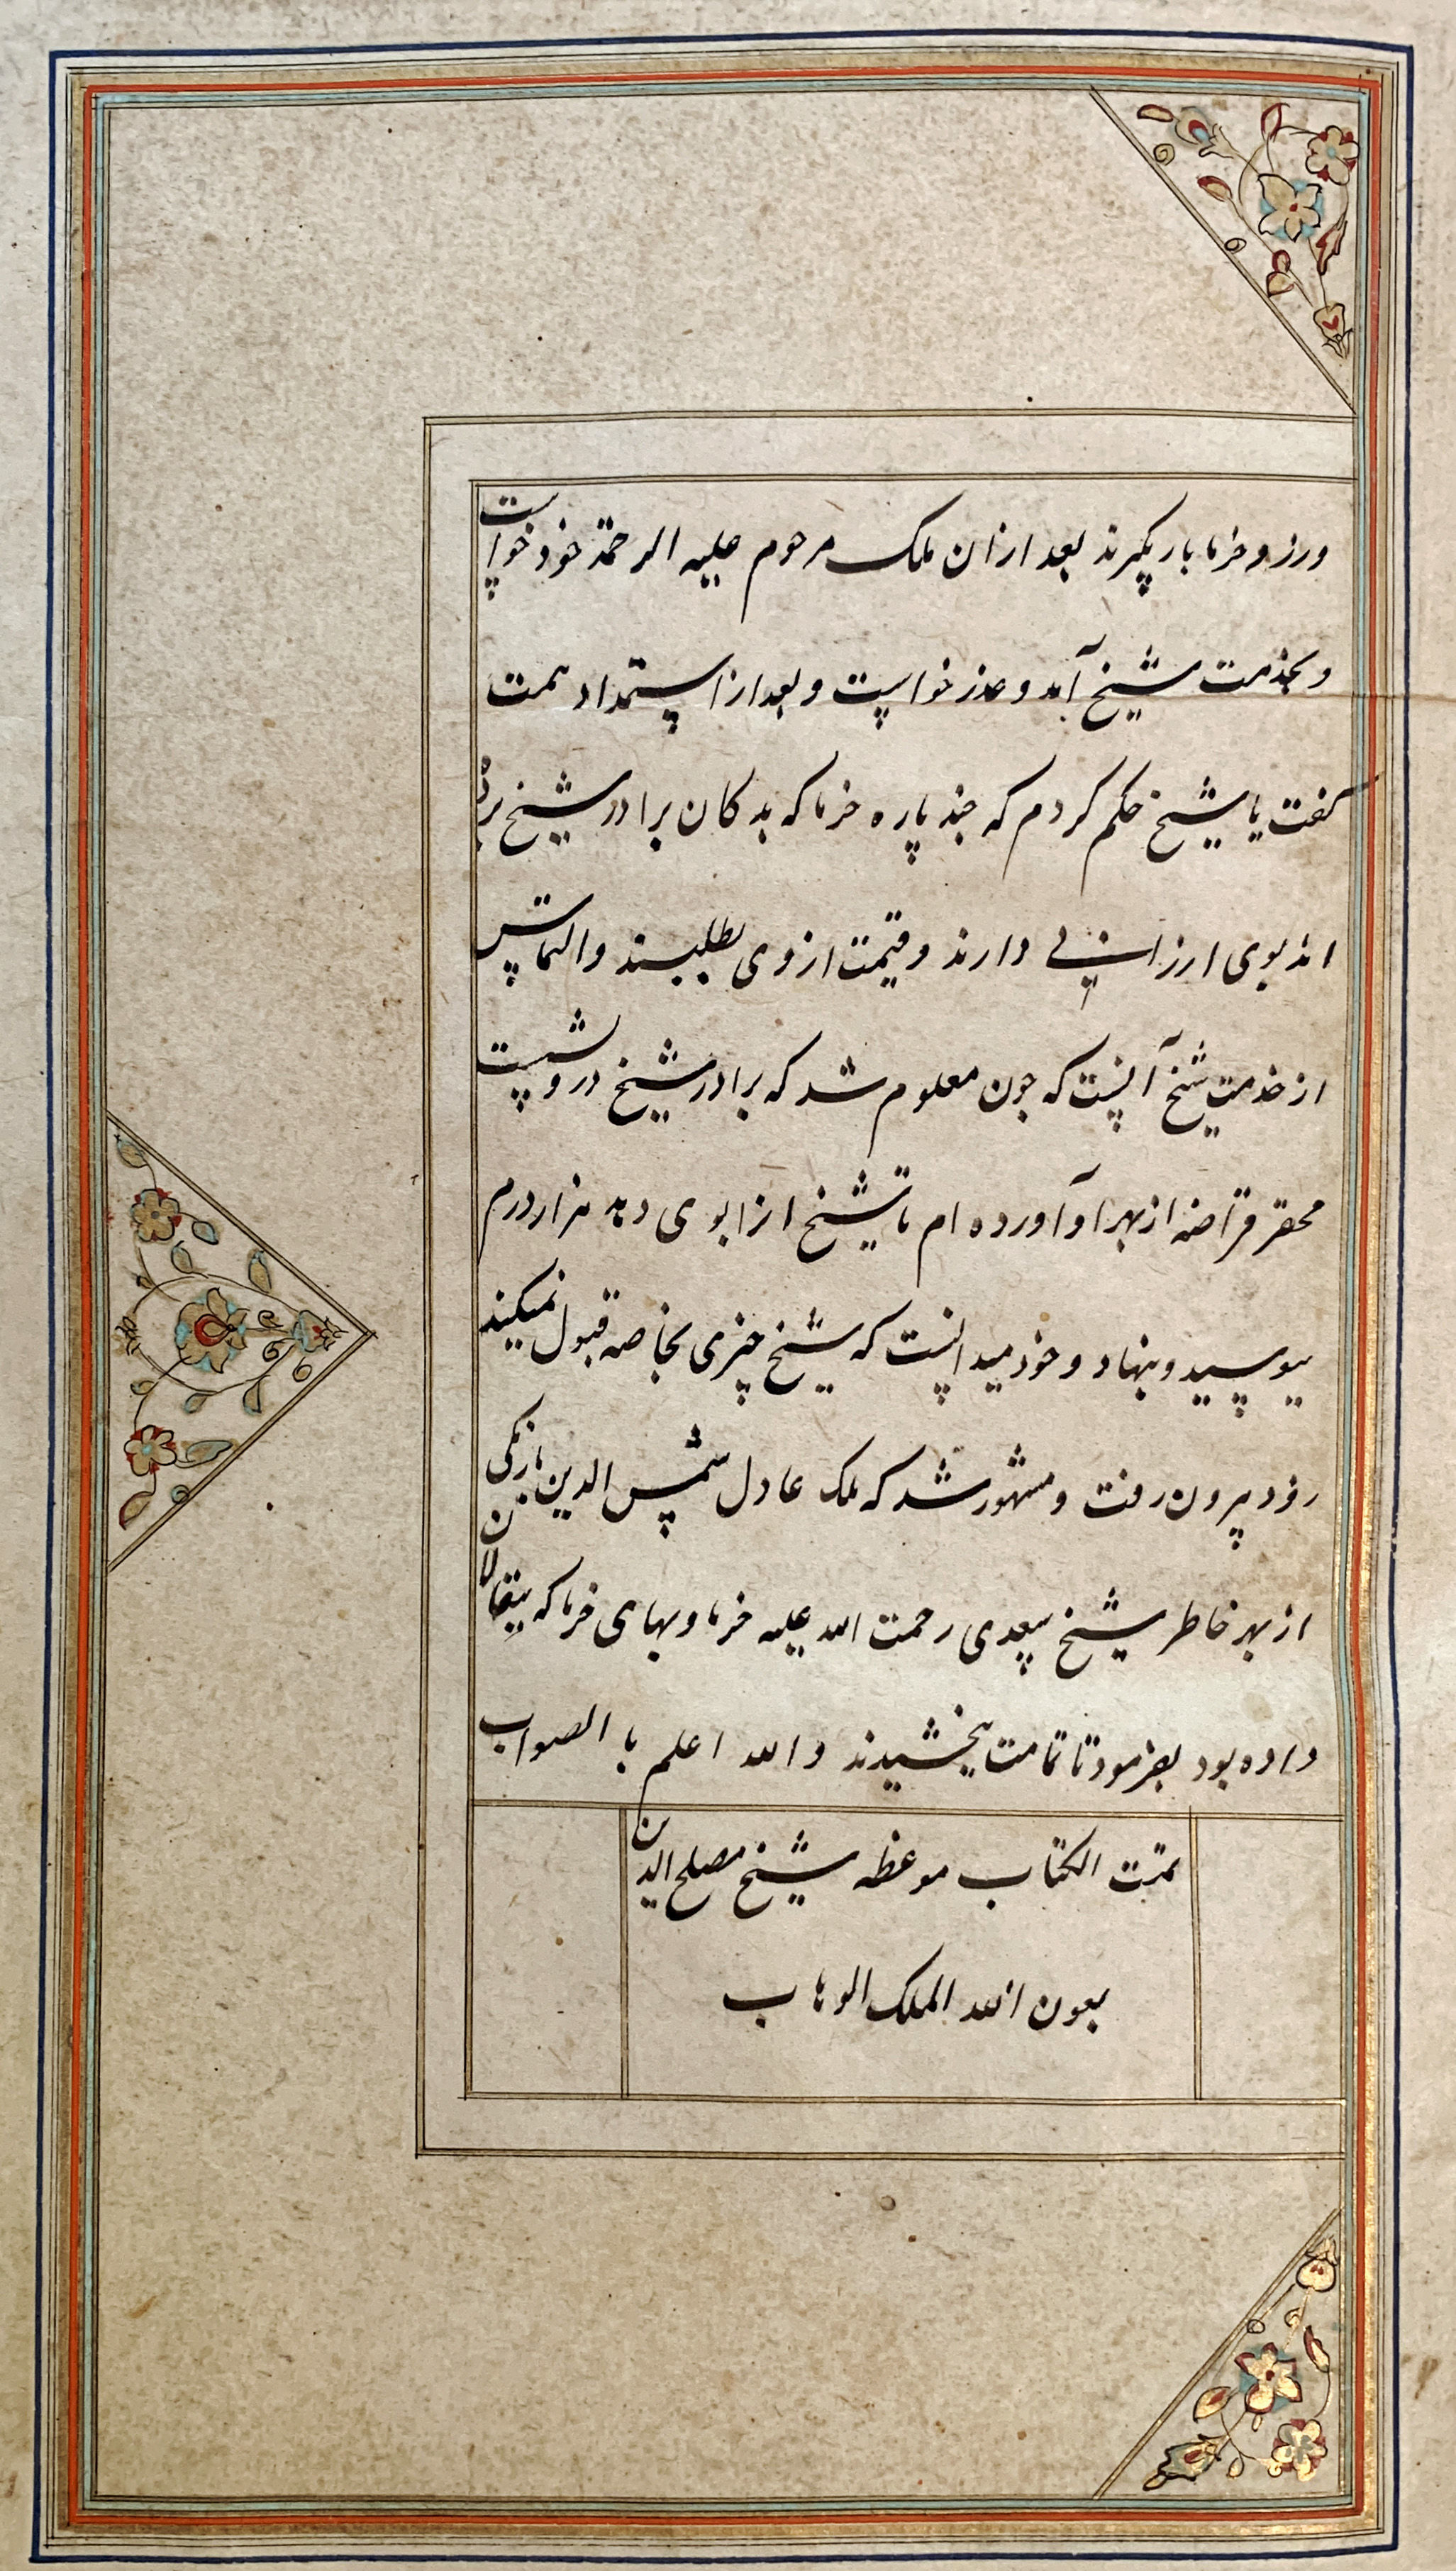 ورز و خرما بار بگیرند بعد ازان ملک مرحوم علیه الرحمة خود خواست
و بخدمت شیخ آمد و عذر خواست و بعد از استمداد همت
گفت یا شیخ حکم کردم که چند پاره خرما که بدکان برادر شیخ برده
اند بوی ارزانی دارند و قیمت از وی نطلبند و التماس
از خدمت شیخ آنست که چون معلوم شد که برادر شیخ درویشست
محقر قراضه از بهر او آورده ام تا شیخ انرا بوی دهد هزار درم
ببوسید و بنهاد و خود میدانست که شیخ چیزی بخاصه قبول نمیکند
زود بیرون رفت و مشهور شد که ملک عادل شمس الدین تازیکی
از بهر خاطر شیخ سعدی رحمت الله علیه خرما و بهای خرما که ببقالان
داده بود بفرمود تا تمامت ببخشیدند والله اعلم با الصواب
تمت الکتاب موعظه شیخ مصلح الدین
بعون الله الملک الوهاب